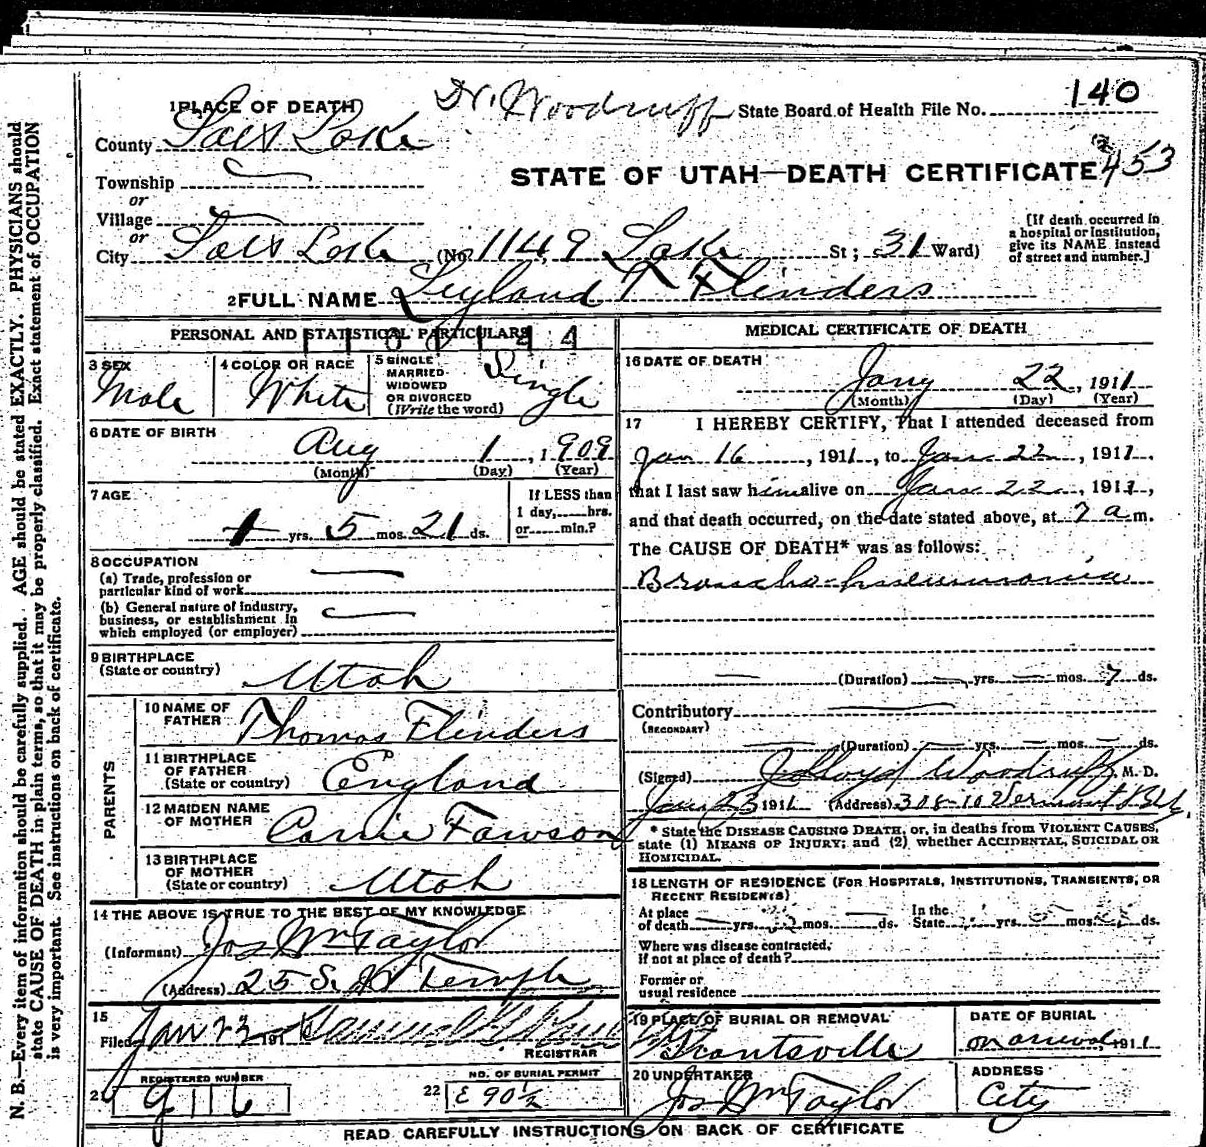 Dr. Woodruff
State Board of Health File No. 140
453
1 PLACE OF DEATH
County Salt Lake
STATE OF UTAH—DEATH CERTIFICATE
Township
or
Village
or
City Salt Lake (No. 1149 Lake St; 31 Ward)
[If death occurred in
a hospital or institution,
give its NAME instead
of street and number.]
2 FULL NAME Leyland T Flinders
PERSONAL AND STATISTICAL PARTICULARS
3 SEX
Male
4 COLOR OR RACE
White
5 SINGLE
MARRIED
WIDOWED
OR DIVORCED
(Write the word)
Single
6 DATE OF BIRTH
Aug 1, 1909
(Month) (Day) (Year)
7 AGE
1 yrs. 5 mos. 21 ds.
If LESS than
1 day,......hrs.
or......min.?
8 OCCUPATION
(a) Trade, profession or
particular kind of work
(b) General nature of industry,
business, or establishment in
which employed (or employer)
9 BIRTHPLACE
(State or country)
Utah
PARENTS
10 NAME OF
FATHER
Thomas Flinders
11 BIRTHPLACE
OF FATHER
(State or country)
England
12 MAIDEN NAME
OF MOTHER
Carrie Fawson
13 BIRTHPLACE
OF MOTHER
(State or country)
Utah
14 THE ABOVE IS TRUE TO THE BEST OF MY KNOWLEDGE
(Informant) Jos Wm Taylor
(Address) 25 S. W Temple
15
Filed Jan 23 191
REGISTRAR
21
REGISTERED NUMBER
22
NO. OF BURIAL PERMIT
E 90½
MEDICAL CERTIFICATE OF DEATH
16 DATE OF DEATH
Jany 22, 1911
(Month) (Day) (Year)
17 I HEREBY CERTIFY, That I attended deceased from
Jan 16, 1911, to Jan 22, 1911,
that I last saw him alive on Jan 22, 1911,
and that death occurred, on the date stated above, at 7 a m.
The CAUSE OF DEATH* was as follows:
Broncho-pneumonia
(Duration) — yrs. — mos. 7 ds.
Contributory
(SECONDARY)
(Duration) — yrs. — mos. — ds.
(Signed) Woodruff M. D.
Jan 23 1911 (Address) 308-10 Vermont Bld.
* State the DISEASE CAUSING DEATH, or, in deaths from VIOLENT CAUSES,
state (1) MEANS OF INJURY; and (2) whether ACCIDENTAL, SUICIDAL OR
HOMICIDAL.
18 LENGTH OF RESIDENCE (FOR HOSPITALS, INSTITUTIONS, TRANSIENTS, OR
RECENT RESIDENTS)
At place
of death yrs. mos. ds.
In the
State yrs. mos. ds.
Where was disease contracted,
if not at place of death?
Former or
usual residence
19 PLACE OF BURIAL OR REMOVAL
Grantsville
DATE OF BURIAL
on arrival, 1911
20 UNDERTAKER
Jos Wm Taylor
ADDRESS
City
READ CAREFULLY INSTRUCTIONS ON BACK OF CERTIFICATE
N. B.—Every item of information should be carefully supplied. AGE should be stated EXACTLY. PHYSICIANS should
state CAUSE OF DEATH in plain terms, so that it may be properly classified. Exact statement of OCCUPATION
is very important. See instructions on back of certificate.